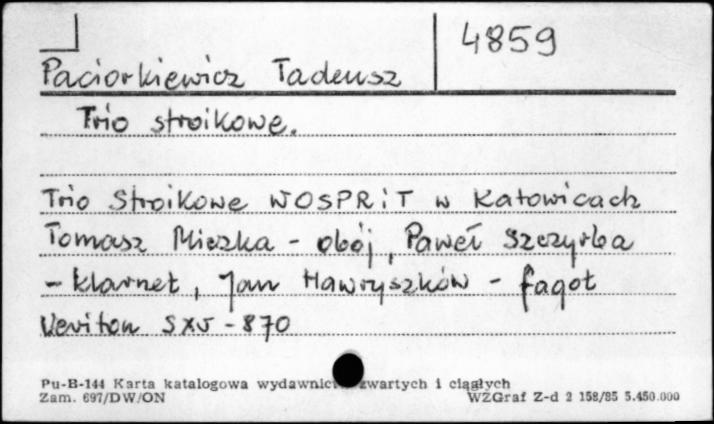 4859
Paciorkiewicz Tadeusz
Trio stroikowe.
Trio Stroikowe WOSPRiT w Katowicach
Tomasz Miczka - obój, Paweł Szczyrba
- klarnet, Jan Hawryszków - fagot
Veriton SXV - 870
Pu-B-144 Karta katalogowa wydawnict zwartych i ciągłych
Zam. 697/DW/ON WZGraf Z-d 2 158/85 5.450.000